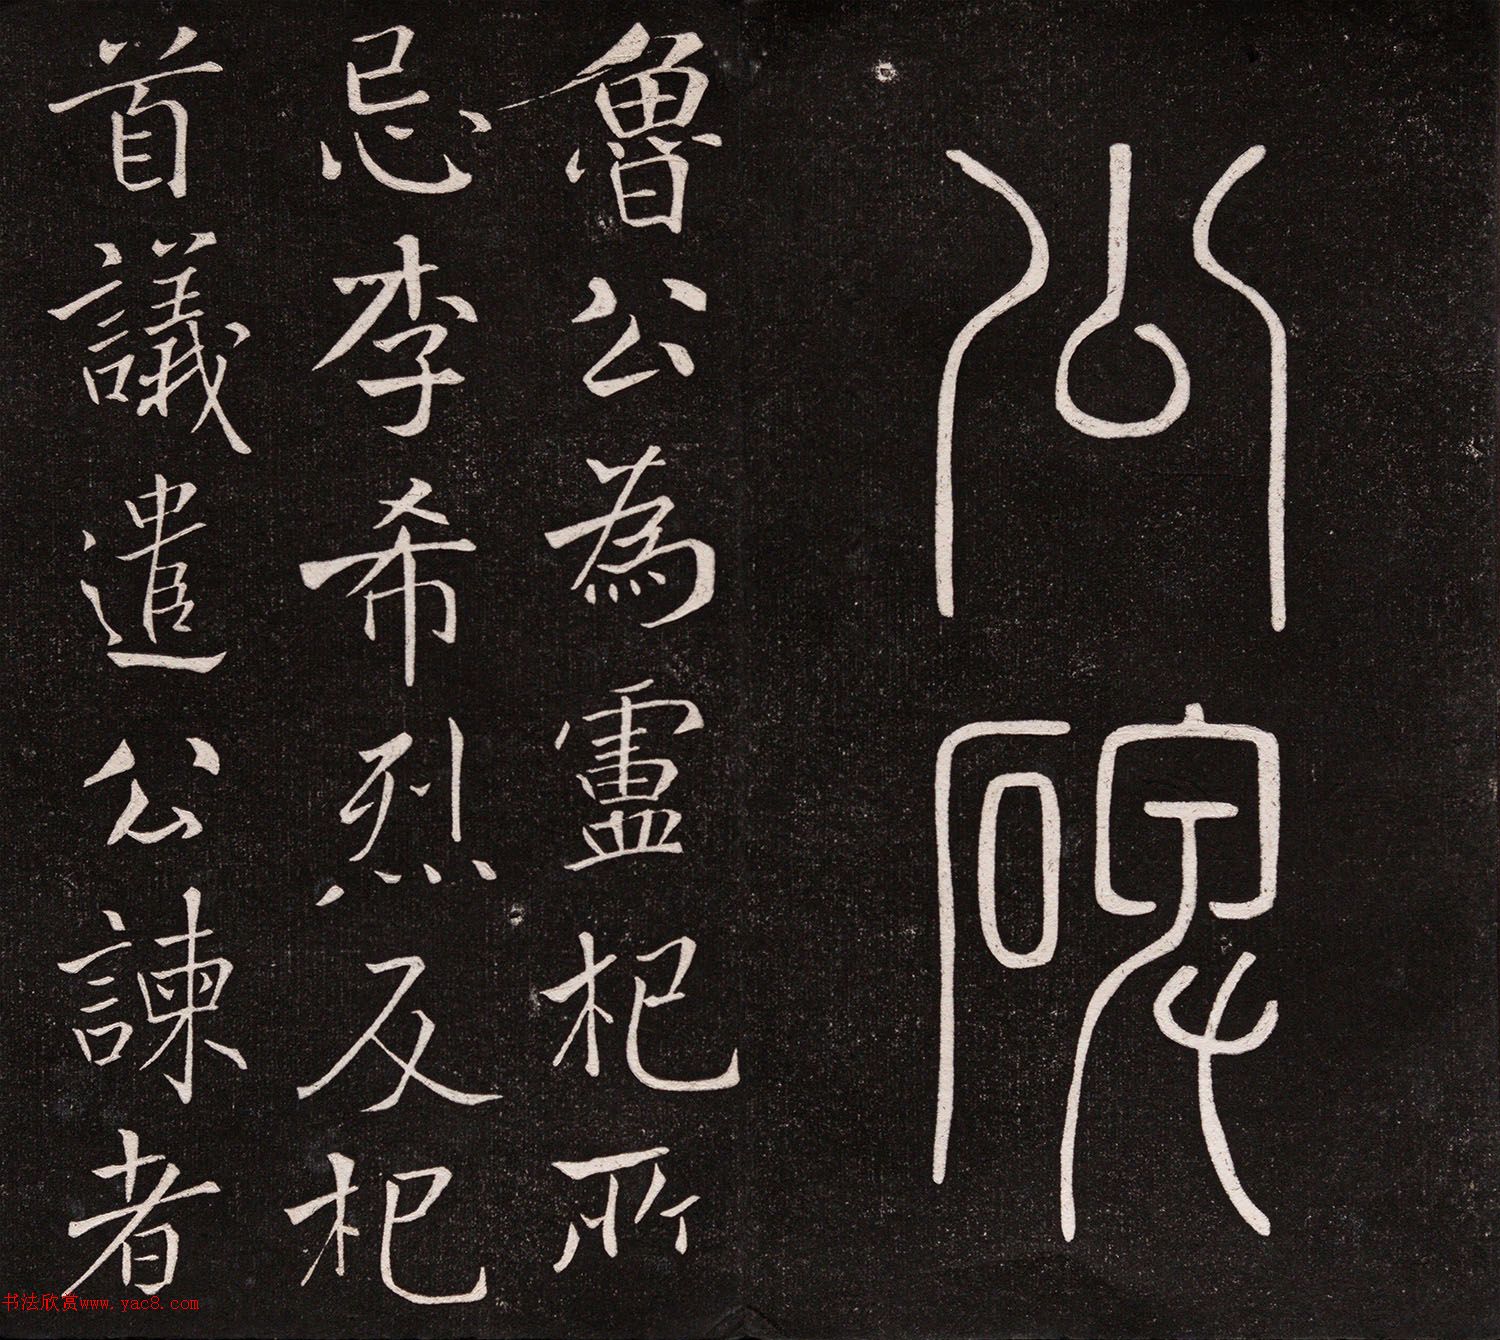 公碑
魯公為盧杞所
忌李希烈反杞
首議遣公諫者
书法欣赏www.yac8.com